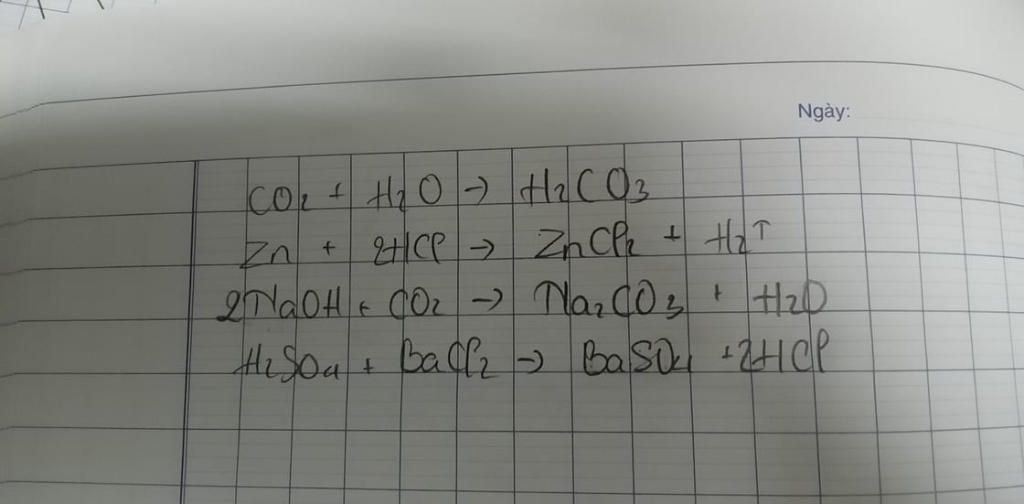 Ngày:
CO₂ + H₂O → H₂CO₃
Zn + 2HCl → ZnCl₂ + H₂↑
2NaOH + CO₂ → Na₂CO₃ + H₂O
H₂SO₄ + BaCl₂ → BaSO₄ + 2HCl